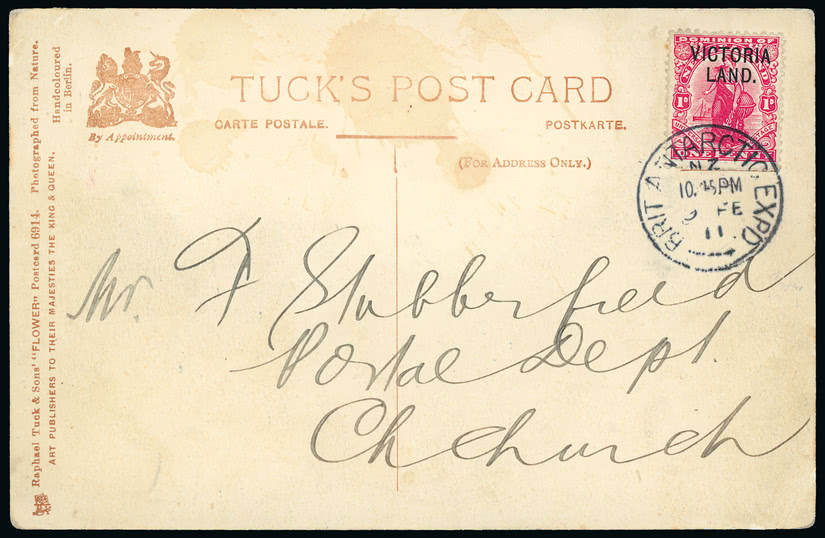 Raphael Tuck & Sons' "FLOWER" Postcard 6914. Photographed from Nature.
ART PUBLISHERS TO THEIR MAJESTIES THE KING & QUEEN.
Handcoloured
in Berlin.
By Appointment.
TUCK'S POST CARD
CARTE POSTALE.
POSTKARTE.
(FOR ADDRESS ONLY.)
DOMINION OF
VICTORIA
LAND.
1D 1D
BRIT. ANTARCTIC EXPD
NZ
10.45PM
FE
11
Mr. F Stubberfield
Postal Dept.
Chchurch